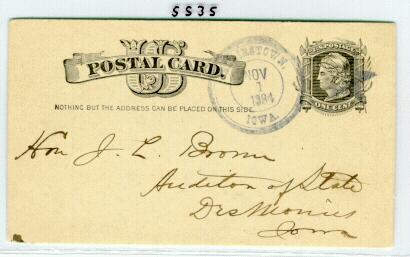 5535
US
POSTAL CARD.
U.S. POSTAGE
ONE CENT
NOV
1
1884
IOWA.
NOTHING BUT THE ADDRESS CAN BE PLACED ON THIS SIDE.
Hon J. L. Brown
Auditor of State
Des Moines
Iowa